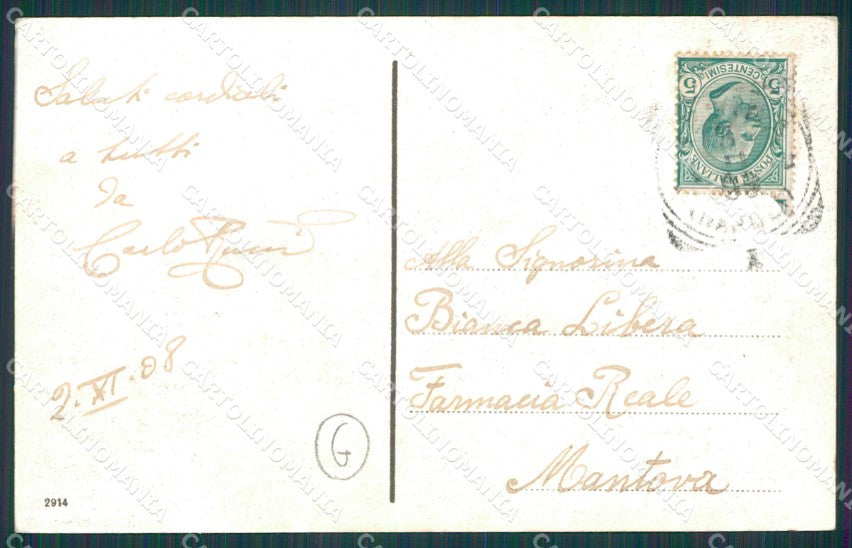 Saluti cordiali
a tutti
da
Carlo
2.XI.08
2914
G
5 CENTESIMI 5
POSTE ITALIANE
Alla Signorina
Bianca Libera
Farmacia Reale
Mantova
CARTOLINOMANIA